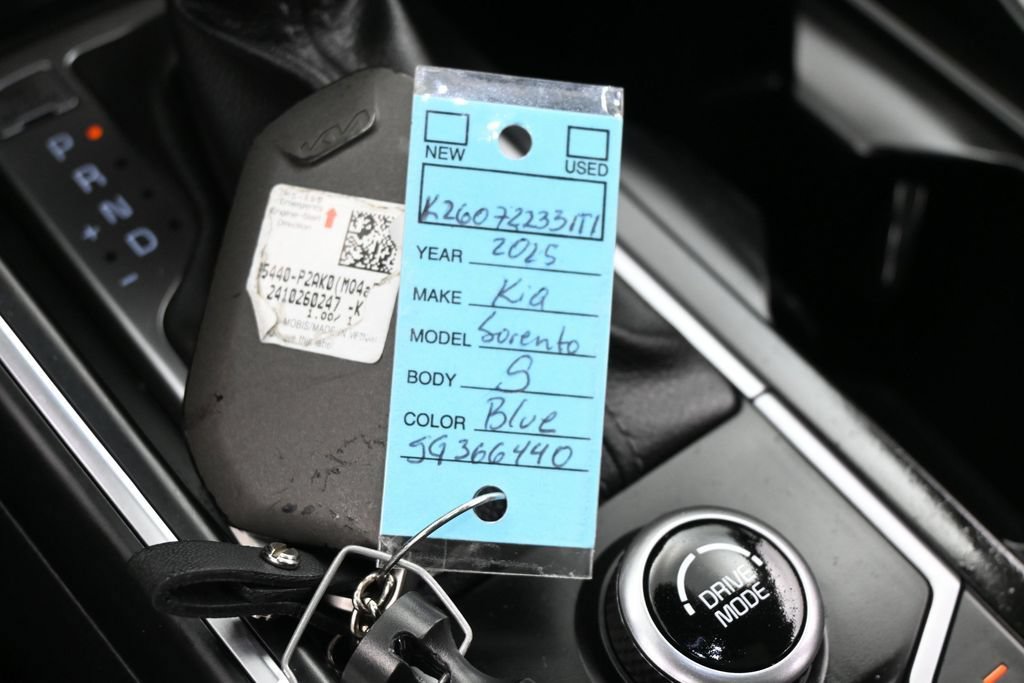 P
R
N
D
+
−
KIA
Emergency
Engine-Start
Direction
95440-P2AK0(M04a
2410260247 -K
1.00/ 1
MOBIS/MADE IN VIETNAM
this label
NEW
USED
K26072233IT1
YEAR 2025
MAKE Kia
MODEL Sorento
BODY S
COLOR Blue
SG366440
DRIVE
MODE